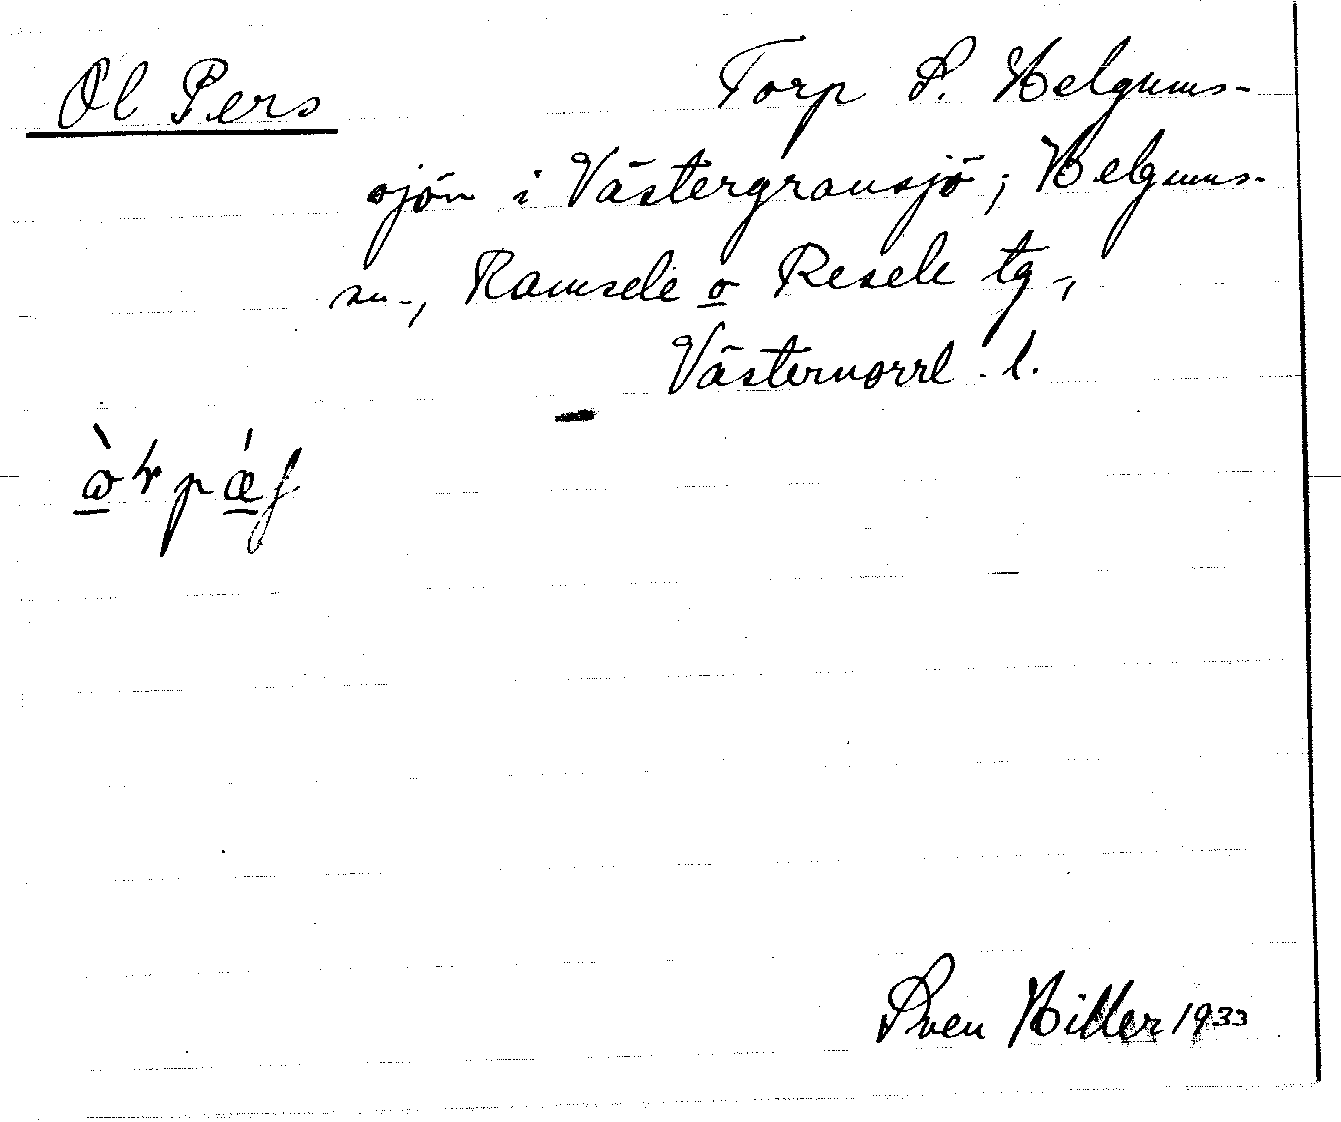 Ol Pers
Torp S. Helgums-
sjön i Västergransjö; Helgums
sn., Ramsele o Resele tg.,
Västernorrl. l.
Sven Hiller 1933